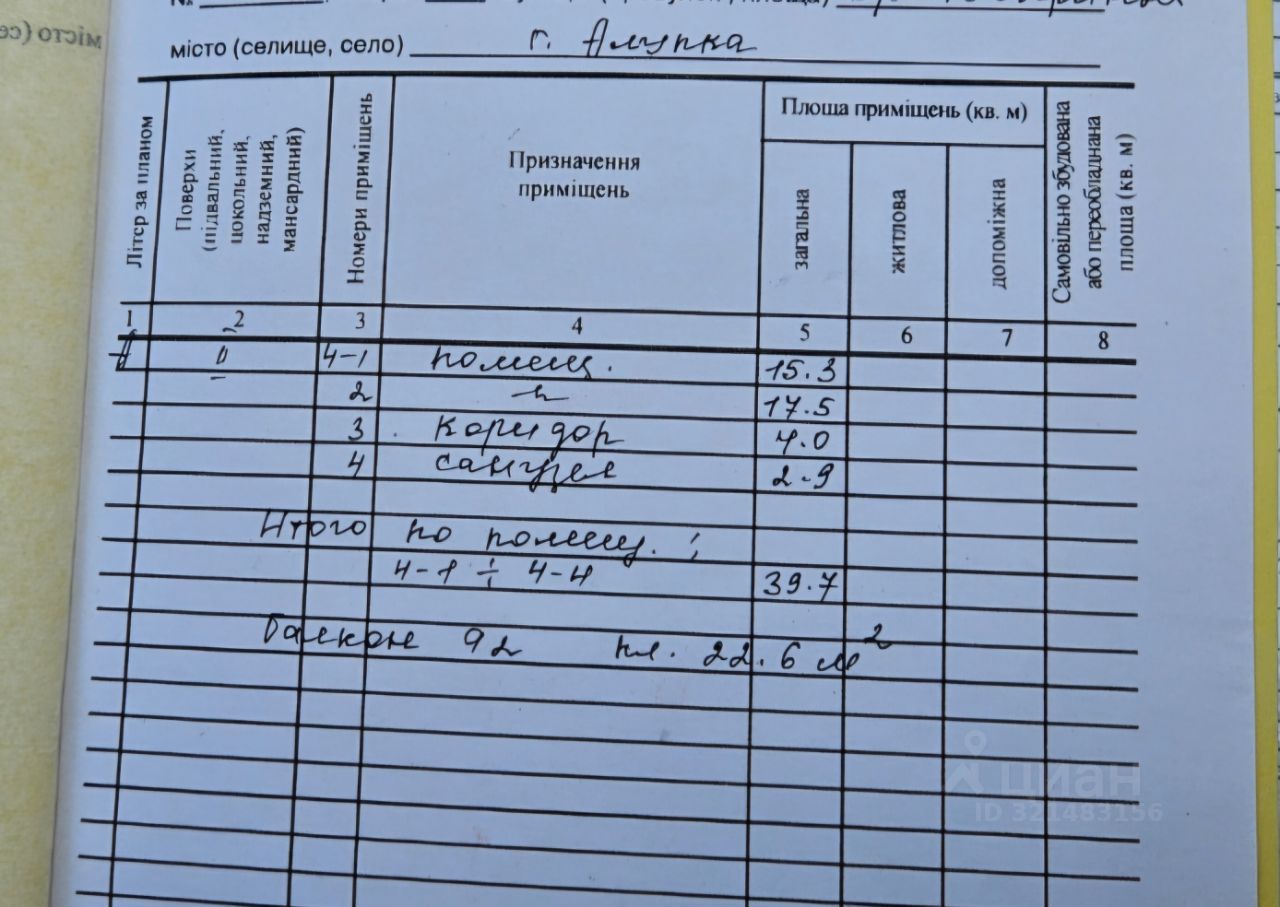 місто (селище, село) г. Алупка
Літер за планом
Поверхи (підвальний, цокольний, надземний, мансардний)
Номери приміщень
Призначення приміщень
Площа приміщень (кв. м)
загальна
житлова
допоміжна
Самовільно збудована або переобладнана площа (кв. м)
1 2 3 4 5 6 7 8
4-1 помещ. 15.3
2 -"- 17.5
3 коридор 4.0
4 санузел 2.9
Итого по помещ. :
4-1 ÷ 4-4 39.7
Балкон пл. 22.6 м²
циан
ID 321483156